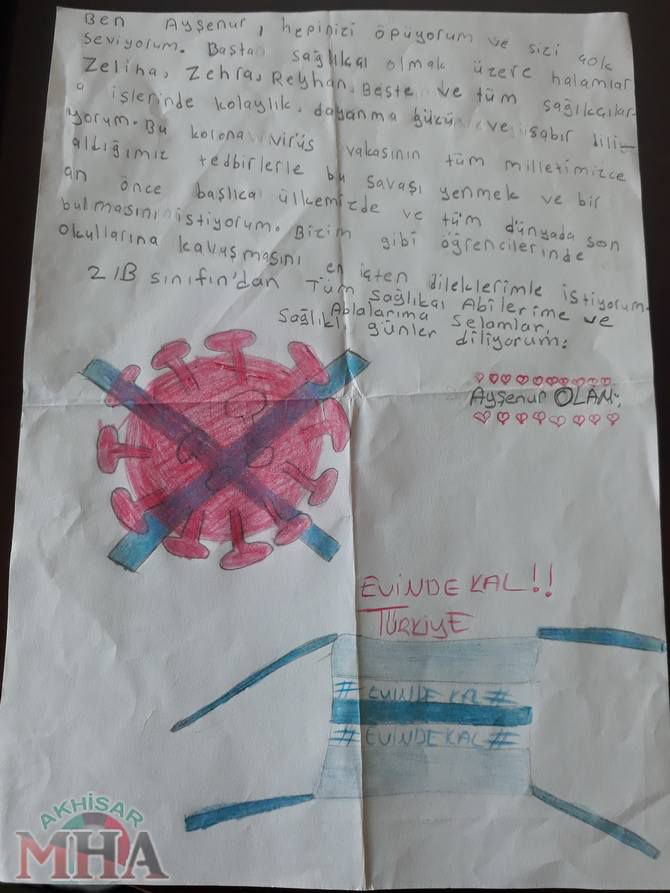 Ben Ayşenur, hepinizi öpüyorum ve sizi çok
seviyorum. Başta sağlıkçı olmak üzere halamlar
Zeliha, Zehra, Reyhan, Beste ve tüm sağlıkçılar-
a işlerinde kolaylık, dayanma gücü ve sabır dili-
yorum. Bu korona virüs vakasının tüm milletimizce
aldığımız tedbirlerle bu savaşı yenmek ve bir
an önce başlıca ülkemizde ve tüm dünyada son
bulmasını istiyorum. Bizim gibi öğrencilerinde
okullarına kavaşmasını en içten dileklerimle istiyorum.
2/B sınıfın'dan Tüm Sağlıkçı Abilerime ve
Ablalarıma Selamlar,
Sağlıklı günler diliyorum:
Ayşenur OLAM
EVİNDE KAL!!
TÜRKİYE
# EVİNDE KAL #
# EVİNDE KAL #
AKHİSAR
MHA